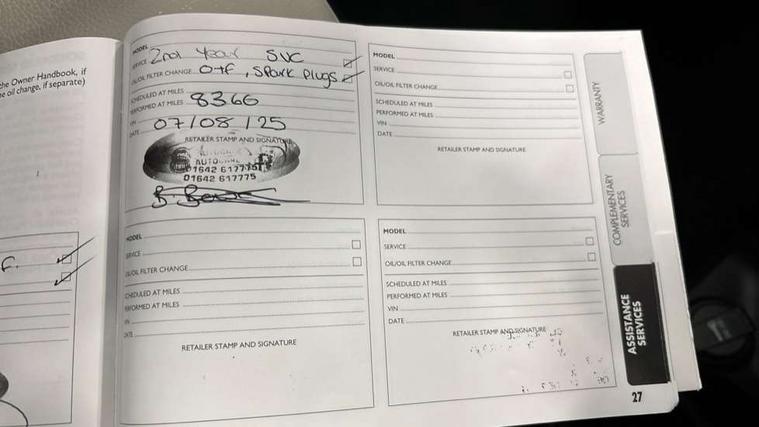 the Owner Handbook, if
oil change, if separate)
F.
MODEL
SERVICE 2nd Year SVC
OIL/OIL FILTER CHANGE O+F, Spark Plugs
SCHEDULED AT MILES
PERFORMED AT MILES 8366
VIN
DATE 07/08/25
RETAILER STAMP AND SIGNATURE
01642 617775
01642 617775
MODEL
SERVICE
OIL/OIL FILTER CHANGE
SCHEDULED AT MILES
PERFORMED AT MILES
VIN
DATE
RETAILER STAMP AND SIGNATURE
MODEL
SERVICE
OIL/OIL FILTER CHANGE
SCHEDULED AT MILES
PERFORMED AT MILES
VIN
DATE
RETAILER STAMP AND SIGNATURE
MODEL
SERVICE
OIL/OIL FILTER CHANGE
SCHEDULED AT MILES
PERFORMED AT MILES
VIN
DATE
RETAILER STAMP AND SIGNATURE
WARRANTY
COMPLEMENTARY
SERVICES
ASSISTANCE
SERVICES
27